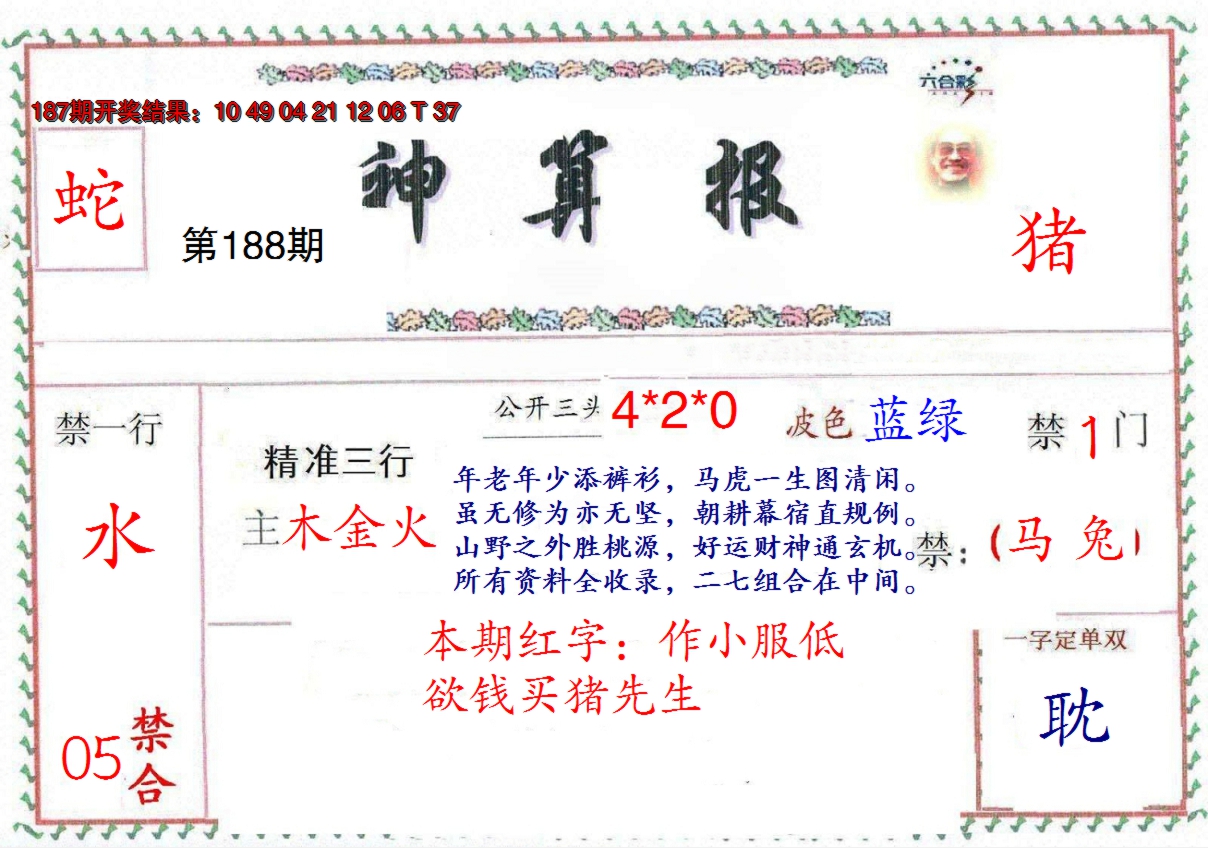 六合彩
187期开奖结果：10 49 04 21 12 06 T 37
神算报
蛇
第188期
猪
禁一行
水
05
禁合
精准三行
主木金火
公开三头 4*2*0
波色 蓝绿
年老年少添裤衫，马虎一生图清闲。
虽无修为亦无坚，朝耕幕宿直规例。
山野之外胜桃源，好运财神通玄机。
所有资料全收录，二七组合在中间。
本期红字：作小服低
欲钱买猪先生
禁1门
禁：(马 兔)
一字定单双
耽